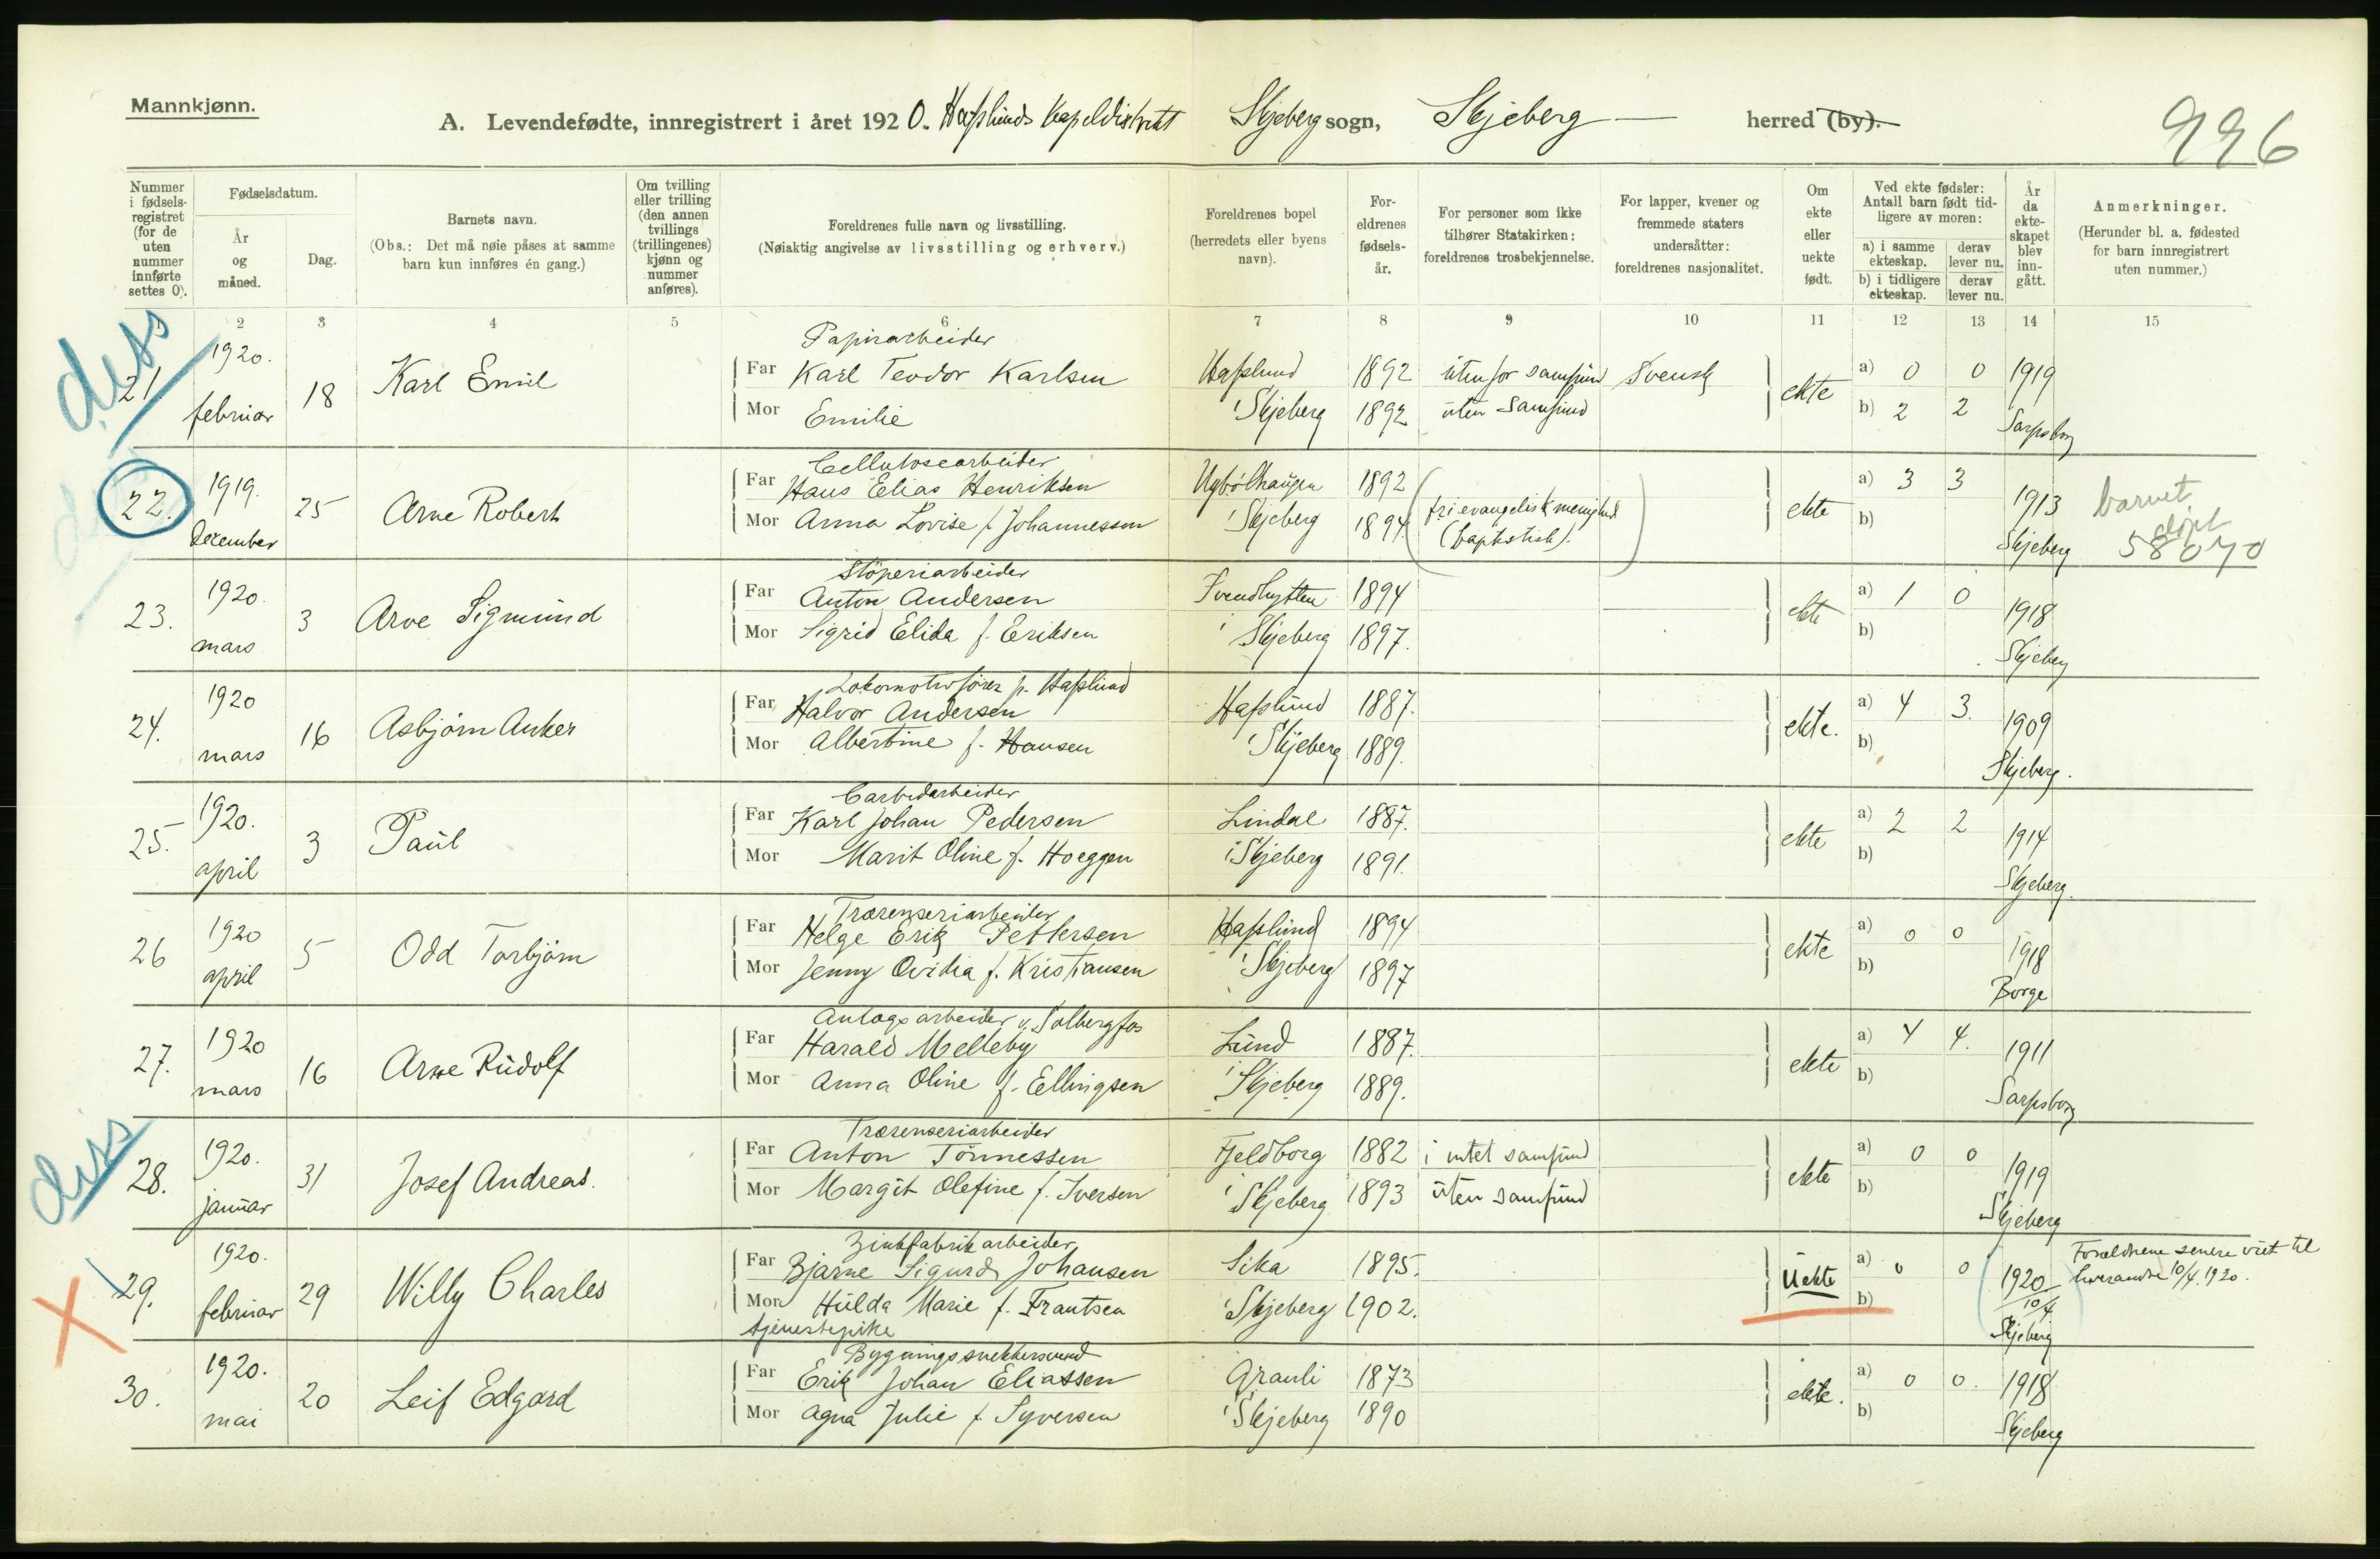 Mannkjønn.
A. Levendefødte, innregistrert i året 1920. Hafslunds Kapeldistrikt Skjeberg sogn, Skjeberg — herred (by).
996
Nummer i fødsels-registret (for de uten nummer innførte settes 0).
Fødselsdatum.
År og måned.
Dag.
Barnets navn.
(Obs.: Det må nøie påses at samme barn kun innføres én gang.)
Om tvilling eller trilling (den annen tvillings (trillingenes) kjønn og nummer anføres).
Foreldrenes fulle navn og livsstilling.
(Nøiaktig angivelse av livsstilling og erhverv.)
Foreldrenes bopel (herredets eller byens navn).
For-eldrenes fødsels-år.
For personer som ikke tilhører Statskirken: foreldrenes trosbekjennelse.
For lapper, kvener og fremmede staters undersåtter: foreldrenes nasjonalitet.
Om ekte eller uekte født.
Ved ekte fødsler: Antall barn født tid-ligere av moren:
a) i samme ekteskap.
derav lever nu.
b) i tidligere ekteskap.
derav lever nu.
År da ekte-skapet blev inn-gått.
Anmerkninger.
(Herunder bl. a. fødested for barn innregistrert uten nummer.)
2 3 4 5 6 7 8 9 10 11 12 13 14 15
diss
Papirarbeider
21 1920. februar 18 Karl Emil
Far Karl Teodor Karlsen Hafslund 1892 utenfor samfund Svensk ekte a) 0 0 1919
Mor Emilie i Skjeberg 1892 uten samfund b) 2 2 Sarpsborg
Cellulosearbeider
22. 1919. december 25 Arne Robert
Far Hans Elias Henriksen 1892 ekte a) 3 3 1913 barnet døpt
Mor Anna Lovise f. Johannessen i Skjeberg 1894 (fri evangelisk menighed (baptistisk). b) Skjeberg 58070
Støperiarbeider
23. 1920. mars 3 Arve Sigmund
Far Anton Andersen 1894 ekte a) 1 0 1918
Mor Sigrid Elida f. Eriksen i Skjeberg 1897. b) Skjeberg
Lokomotivfører p. Hafslund
24. 1920 mars 16 Asbjørn Anker
Far Halvor Andersen Hafslund 1887. ekte. a) 4 3. 1909
Mor Albertine f. Hansen i Skjeberg 1889. b) Skjeberg.
Carbidarbeider
25. 1920. april 3 Paul
Far Karl Johan Pedersen Lindal 1887. ekte a) 2 2 1914
Mor Marit Oline f. Hoeggen i Skjeberg 1891. b) Skjeberg.
Træsenseriarbeider
26 1920 april 5 Odd Torbjørn
Far Helge Erik Pettersen Hafslund 1894 ekte a) 0 0 1918
Mor Jenny Ovidia f. Kristiansen i Skjeberg 1897 b) Borge
Anlægsarbeider v. Solbergfos
27. 1920 mars 16 Arne Rudolf
Far Harald Melleby Lund 1887. ekte a) 4 4. 1911
Mor Anna Oline f. Ellingsen i Skjeberg 1889. b) Sarpsborg
diss
Træsenseriarbeider
28. 1920. januar 31 Josef Andreas.
Far Anton Tønnessen Fjeldborg 1882 i intet samfund ekte a) 0 0 1919
Mor Margit Olefine f. Iversen i Skjeberg 1893 uten samfund b) Skjeberg
Zinkfabrikarbeider
X 29. 1920. februar 29 Willy Charles
Far Bjarne Sigurd Johansen Sika 1895. Uekte a) 0 0 1920 10/4 Forældrene senere viet til hverandre 10/4. 1920.
Mor Hulda Marie f. Frantsen i Skjeberg 1902. b) Skjeberg
tjenestepike
Bygningssnekkersvend
30. 1920. mai 20 Leif Edgard
Far Erik Johan Eliassen Grauli 1873 ekte. a) 0 0. 1918
Mor Agna Julie f. Syversen i Skjeberg 1890 b) Skjeberg